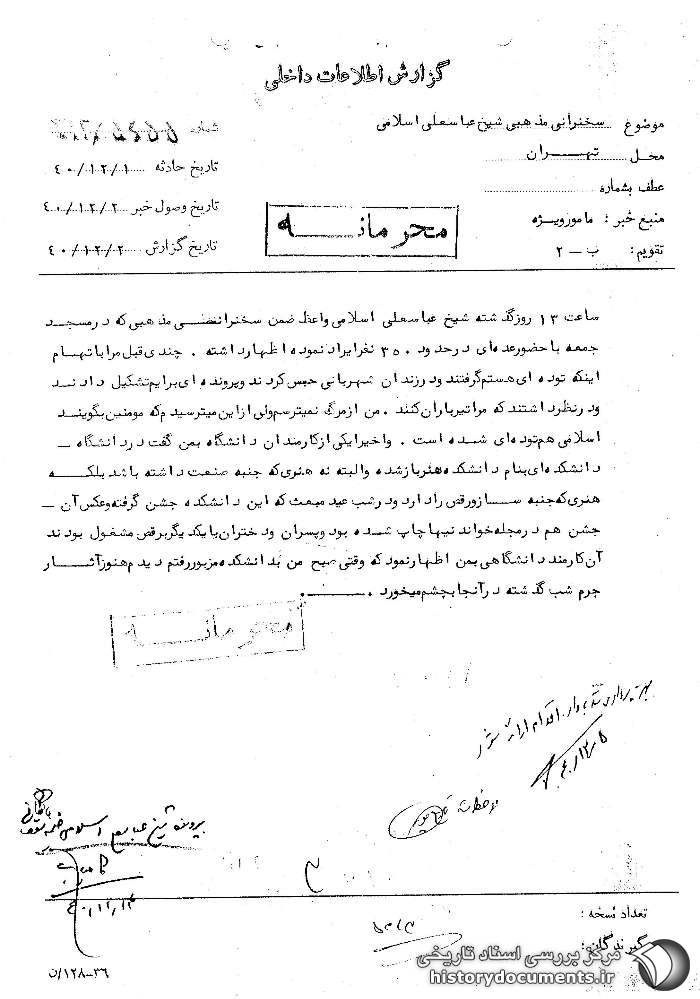 گزارش اطلاعات داخلی
موضوع سخنرانی مذهبی شیخ عباسعلی اسلامی
محل تهــران
عطف بشماره
منبع خبر : مامور ویژه
تقویم : ب – ۲
شماره
تاریخ حادثه ۴۰/۱۲/۱
تاریخ وصول خبر ۴۰/۱۲/۲
تاریخ گزارش ۴۰/۱۲/۲
محرمانــه
ساعت ۱۳ روز گذشته شیخ عباسعلی اسلامی واعظ ضمن سخنرانی مذهبی که در مسجد
جمعه با حضور عده ای در حدود ۳۵۰ نفر ایراد نموده اظهار داشته . چندی قبل مرا باتهام
اینکه توده ای هستم گرفتند و در زندان شهربانی حبس کردند و پرونده ای برایم تشکیل دادند
و در نظر داشتند که مرا تیرباران کنند . من از مرگ نمیترسم ولی از این میترسیدم که مومنین بگویند
اسلامی هم توده ای شده است . و اخیرا یکی از کارمندان دانشگاه بمن گفت در دانشگاه –
دانشکده ای بنام دانشکده هنر باز شده و البته نه هنری که جنبه صنعت داشته باشد بلکــه
هنری که جنبه ســاز و رقص را دارد و در شب عید مبعث که این دانشکده جشن گرفته و عکس آن –
جشن هم در مجله خواندنیها چاپ شده بود و پسران و دختران با یکدیگر برقص مشغول بودند
آن کارمند دانشگاهی بمن اظهار نمود که وقتی صبح من بدانشکده مزبور رفتم دیدم هنوز آثــار
جرم شب گذشته در آنجا بچشم میخورد .
محرمانــه
۴۰/۱۲/۵
ملاحظه شد
پرونده شیخ عباسعلی اسلامی ضمیمه شود
تعداد نسخه :
گیرندگان :
۳۶–۱۲۸/ن
مرکز بررسی اسناد تاریخی
historydocuments.ir